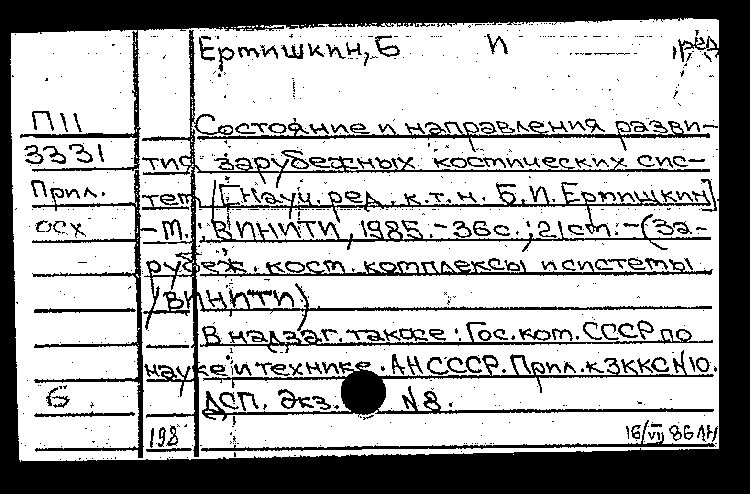 Ертишкин, Б И , ред
П11 Состояние и направления разви-
3331 тия зарубежных космических сис-
Прил. тем / [Науч. ред. к.т.н. Б.И. Ертишкин]
осх - М.: ВИНИТИ, 1985. - 36 с.; 21 см. - (За-
рубеж. косм. комплексы и системы
/ ВИНИТИ)
В надзаг. также: Гос. ком. СССР по
науке и технике. АН СССР. Прил. к ЗККС N10.
6 ДСП. Экз. N 8.
198 16/VII 86